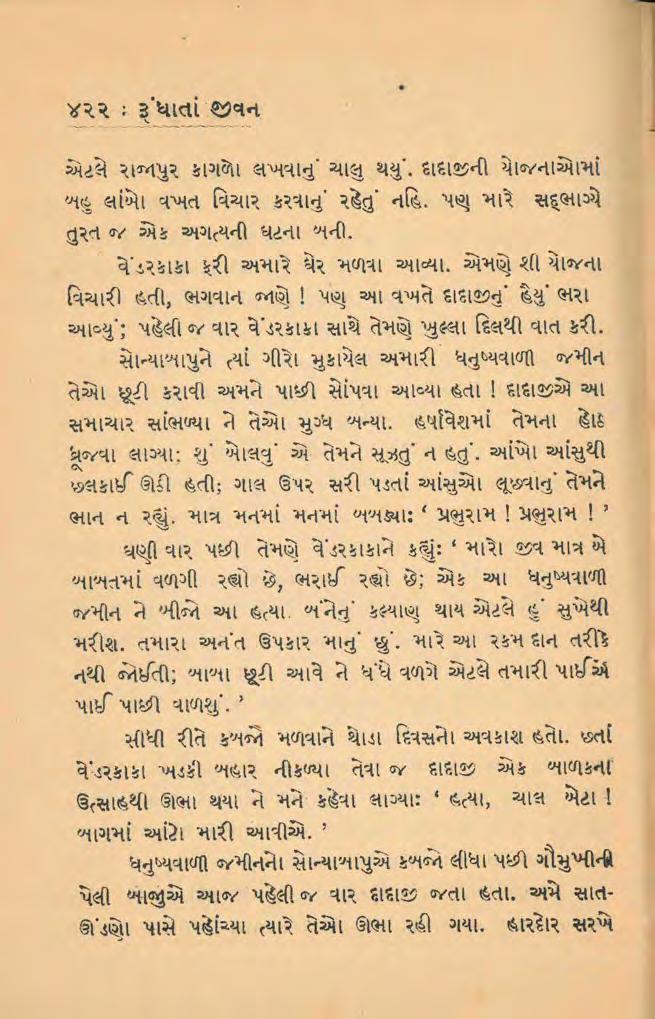 ૪૨૨ : રૂંધાતાં જીવન
એટલે રાજાપુર કાગળો લખવાનું ચાલુ થયું. દાદાજીની યોજનાઓમાં
બહુ લાંબો વખત વિચાર કરવાનું રહેતું નહિ. પણ મારે સદ્ભાગ્યે
તુરત જ એક અગત્યની ઘટના બની.
વેંડરકાકા ફરી અમારે ઘેર મળવા આવ્યા. એમણે શી યોજના
વિચારી હતી, ભગવાન જાણે ! પણ આ વખતે દાદાજીનું હૈયું ભરા
આવ્યું; પહેલી જ વાર વેંડરકાકા સાથે તેમણે ખુલ્લા દિલથી વાત કરી.
સોન્યાબાપુને ત્યાં ગીરો મુકાયેલ અમારી ધનુષ્યવાળી જમીન
તેઓ છૂટી કરાવી અમને પાછી સોંપવા આવ્યા હતા ! દાદાજીએ આ
સમાચાર સાંભળ્યા ને તેઓ મુગ્ધ બન્યા. હર્ષાવેશમાં તેમના હોઠ
ધ્રૂજવા લાગ્યા: શું બોલવું એ તેમને સૂઝતું ન હતું. આંખો આંસુથી
છલકાઈ ઊઠી હતી; ગાલ ઉપર સરી પડતાં આંસુઓ લૂછવાનું તેમને
ભાન ન રહ્યું. માત્ર મનમાં મનમાં બબડ્યા: ‘ પ્રભુરામ ! પ્રભુરામ ! ’
ઘણી વાર પછી તેમણે વેંડરકાકાને કહ્યું: ‘ મારો જીવ માત્ર બે
બાબતમાં વળગી રહ્યો છે, ભરાઈ રહ્યો છે; એક આ ધનુષ્યવાળી
જમીન ને બીજો આ હત્યા. બંનેનું કલ્યાણ થાય એટલે હું સુખેથી
મરીશ. તમારા અનંત ઉપકાર માનું છું. મારે આ રકમ દાન તરીકે
નથી જોઈતી; બાબા છૂટી આવે ને ધંધે વળગે એટલે તમારી પાઈએ
પાઈ પાછી વાળશું. ’
સીધી રીતે કબજો મળવાને થોડા દિવસનો અવકાશ હતો. છતાં
વેંડરકાકા ખડકી બહાર નીકળ્યા તેવા જ દાદાજી એક બાળકના
ઉત્સાહથી ઊભા થયા ને મને કહેવા લાગ્યા: ‘ હત્યા, ચાલ બેટા !
બાગમાં આંટો મારી આવીએ. ’
ધનુષ્યવાળી જમીનનો સોન્યાબાપુએ કબજો લીધા પછી ગૌમુખીની
પેલી બાજુએ આજ પહેલી જ વાર દાદાજી જતા હતા. અમે સાત-
ઊંડણો પાસે પહોંચ્યા ત્યારે તેઓ ઊભા રહી ગયા. હારદોર સરખે